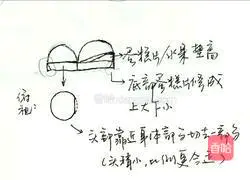 蛋糕片/水果垫高
底部蛋糕片修成
上大下小
俯视:
头部靠近身体部分切去三分
(头稍小,比例更合适)
香哈